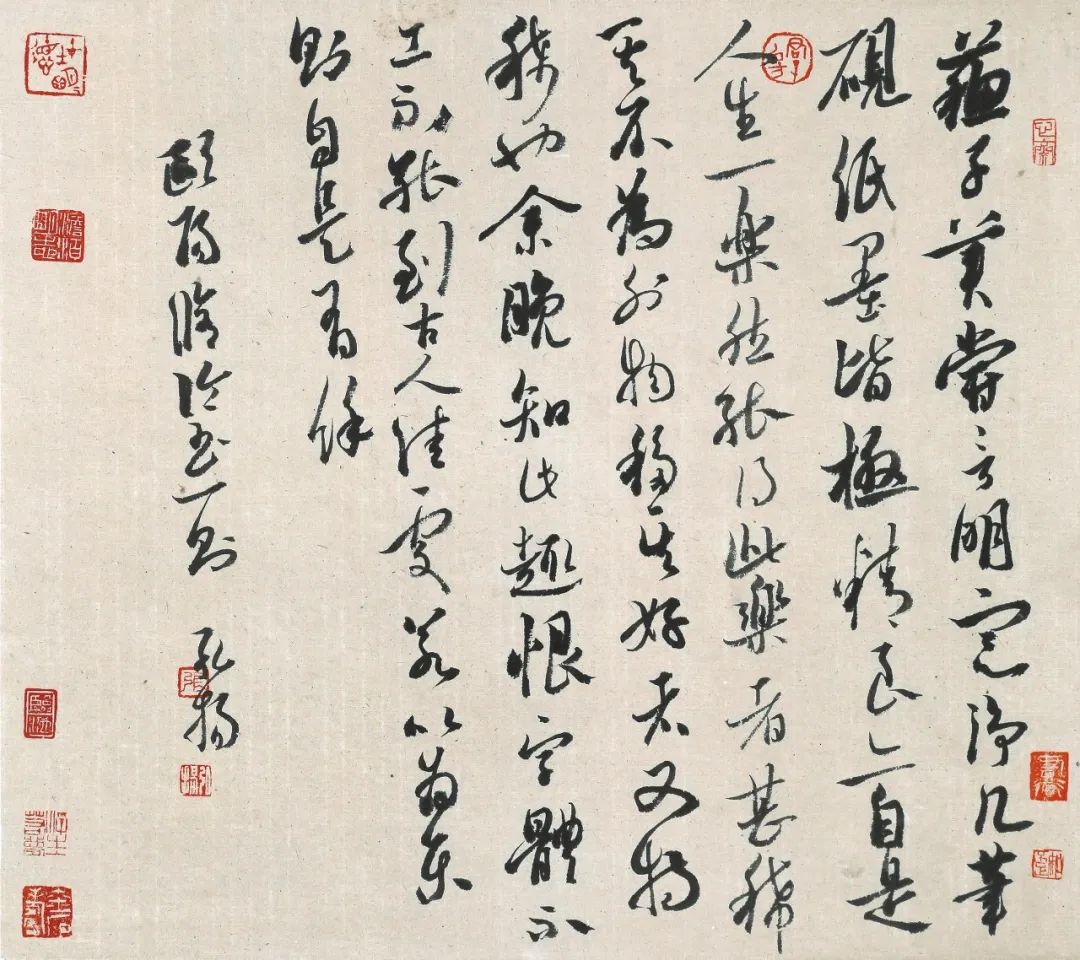 蘇子美嘗言明窓淨几筆
硯紙墨皆極精良亦自是
人生一樂然能得此樂者甚稀
其不為外物移其好者又特
稀也余晚知此趣恨字體不
工不能到古人佳處若以為樂
則自是有餘
歐陽脩論書一則